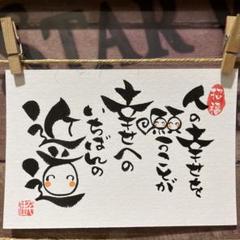 人の幸せを
願うことが
幸せへの
いちばんの
近道
招福